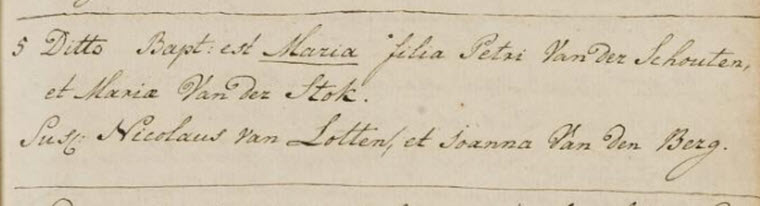 5 Ditto Bapt: est Maria filia Petri Van der Schouten,
et Mariæ Van der Stok.
Susc: Nicolaus van Lotten, et Joanna Van den Berg.